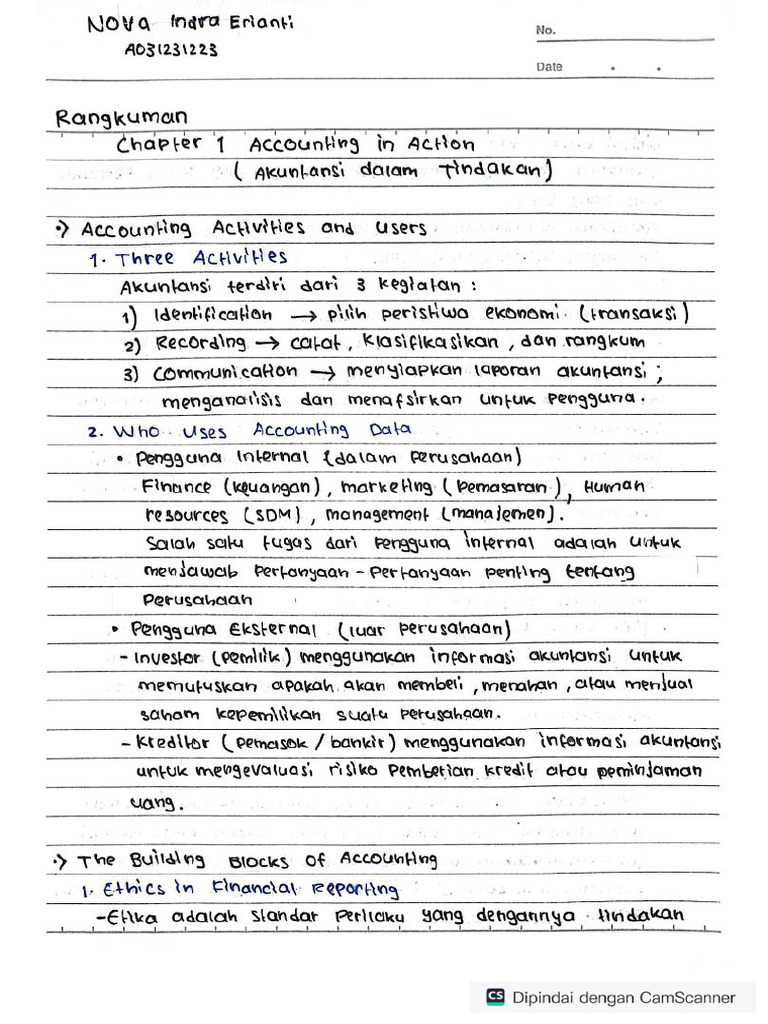 Nova Indra Erianti
A031231223
No.
Date . .
Rangkuman
Chapter 1 Accounting in Action
( Akuntansi dalam Tindakan )
•> Accounting Activities and Users
1. Three Activities
Akuntansi terdiri dari 3 kegiatan :
1) Identification → pilih peristiwa ekonomi (transaksi)
2) Recording → catat, klasifikasikan, dan rangkum
3) Communication → menyiapkan laporan akuntansi ;
menganalisis dan menafsirkan untuk pengguna.
2. Who Uses Accounting Data
• Pengguna Internal (dalam perusahaan)
Finance (keuangan), marketing (pemasaran), Human
resources (SDM), management (manajemen).
Salah satu tugas dari pengguna internal adalah untuk
menjawab pertanyaan-pertanyaan penting tentang
perusahaan
• Pengguna Eksternal (luar perusahaan)
- Investor (pemilik) menggunakan informasi akuntansi untuk
memutuskan apakah akan membeli, menahan, atau menjual
saham kepemilikan suatu perusahaan.
- Kreditor (pemasok / bankir) menggunakan informasi akuntansi
untuk mengevaluasi risiko pemberian kredit atau peminjaman
uang.
•> The Building Blocks of Accounting
1. Ethics in Financial Reporting
- Etika adalah standar perilaku yang dengannya tindakan
CS Dipindai dengan CamScanner